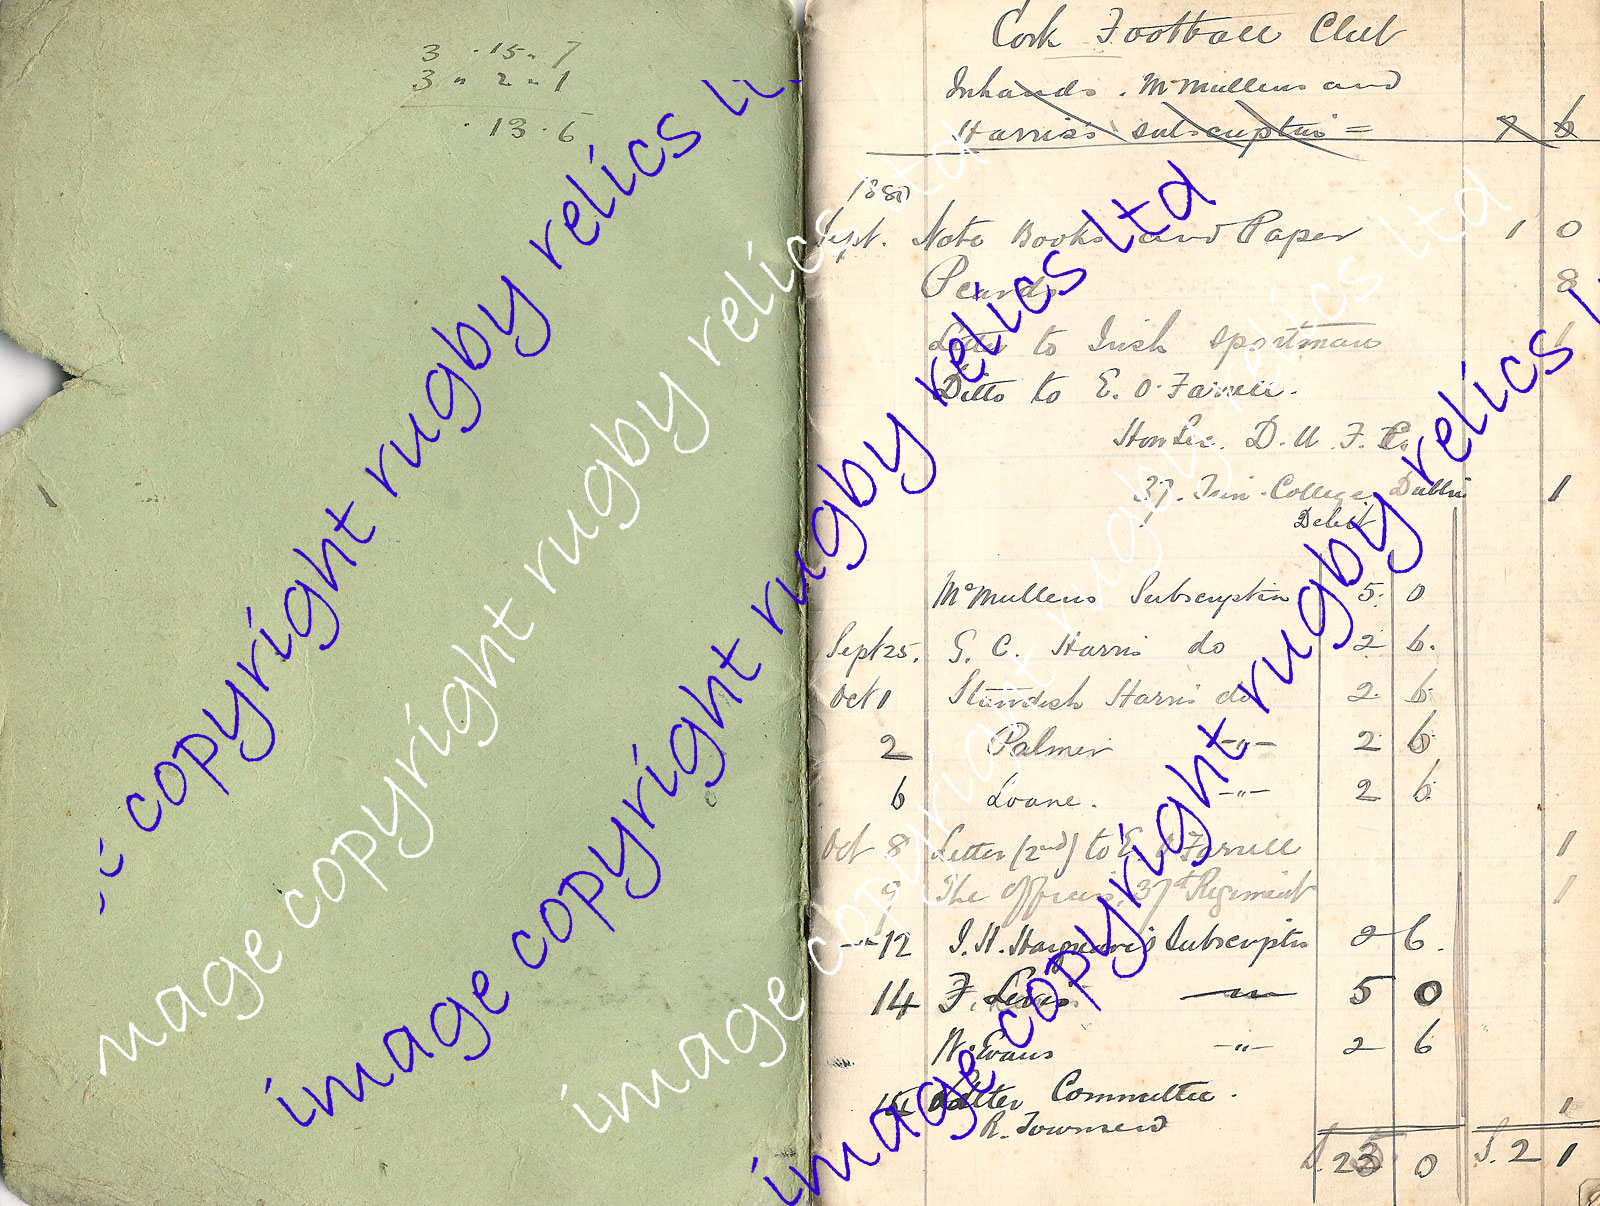 3 . 15 " 7
3 " 2 " 1
. 13 . 6
Cork Football Club
Inhands . McMullens and
Harris's subscription = 7 6
1880
Sept. Note Books and Paper 1 0
8
Letter to Irish Sportsman 1
Ditto to E. O. Farrell.
Hon Sec. D. U. F. C.
37. Trin. College Dublin 1
Debit
McMullens Subscription 5. 0
Sept 25. G. C. Harris do 2 6.
Oct 1 Standish Harris do 2. 6.
2 Palmer -"- 2 6.
6 Loane. -"- 2 6.
Oct 8 Letter (2nd) to E. O Farrell 1
9 The Officers, 37th Regiment 1
-"- 12 J. H. Subscriptn 2 6.
14 F. Lewis -"- 5 0
W. Evans -"- 2 6
15 Letter Committee. 1
R. Townsend
0 S. 2 1
image copyright rugby relics ltd
image copyright rugby relics ltd
image copyright rugby relics ltd
image copyright rugby relics ltd